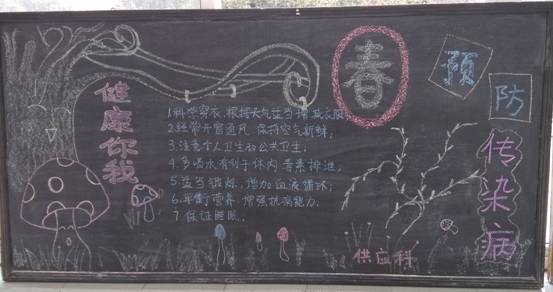 健康你我
春
预防传染病
1.科学穿衣,根据天气适当增减衣服;
2.经常开窗通风,保持空气新鲜;
3.注意个人卫生和公共卫生;
4.多喝水有利于体内毒素排进;
5.适当锻炼,增加血液循环;
6.平衡营养,增强抗病能力.
7.保证睡眠.
供应科